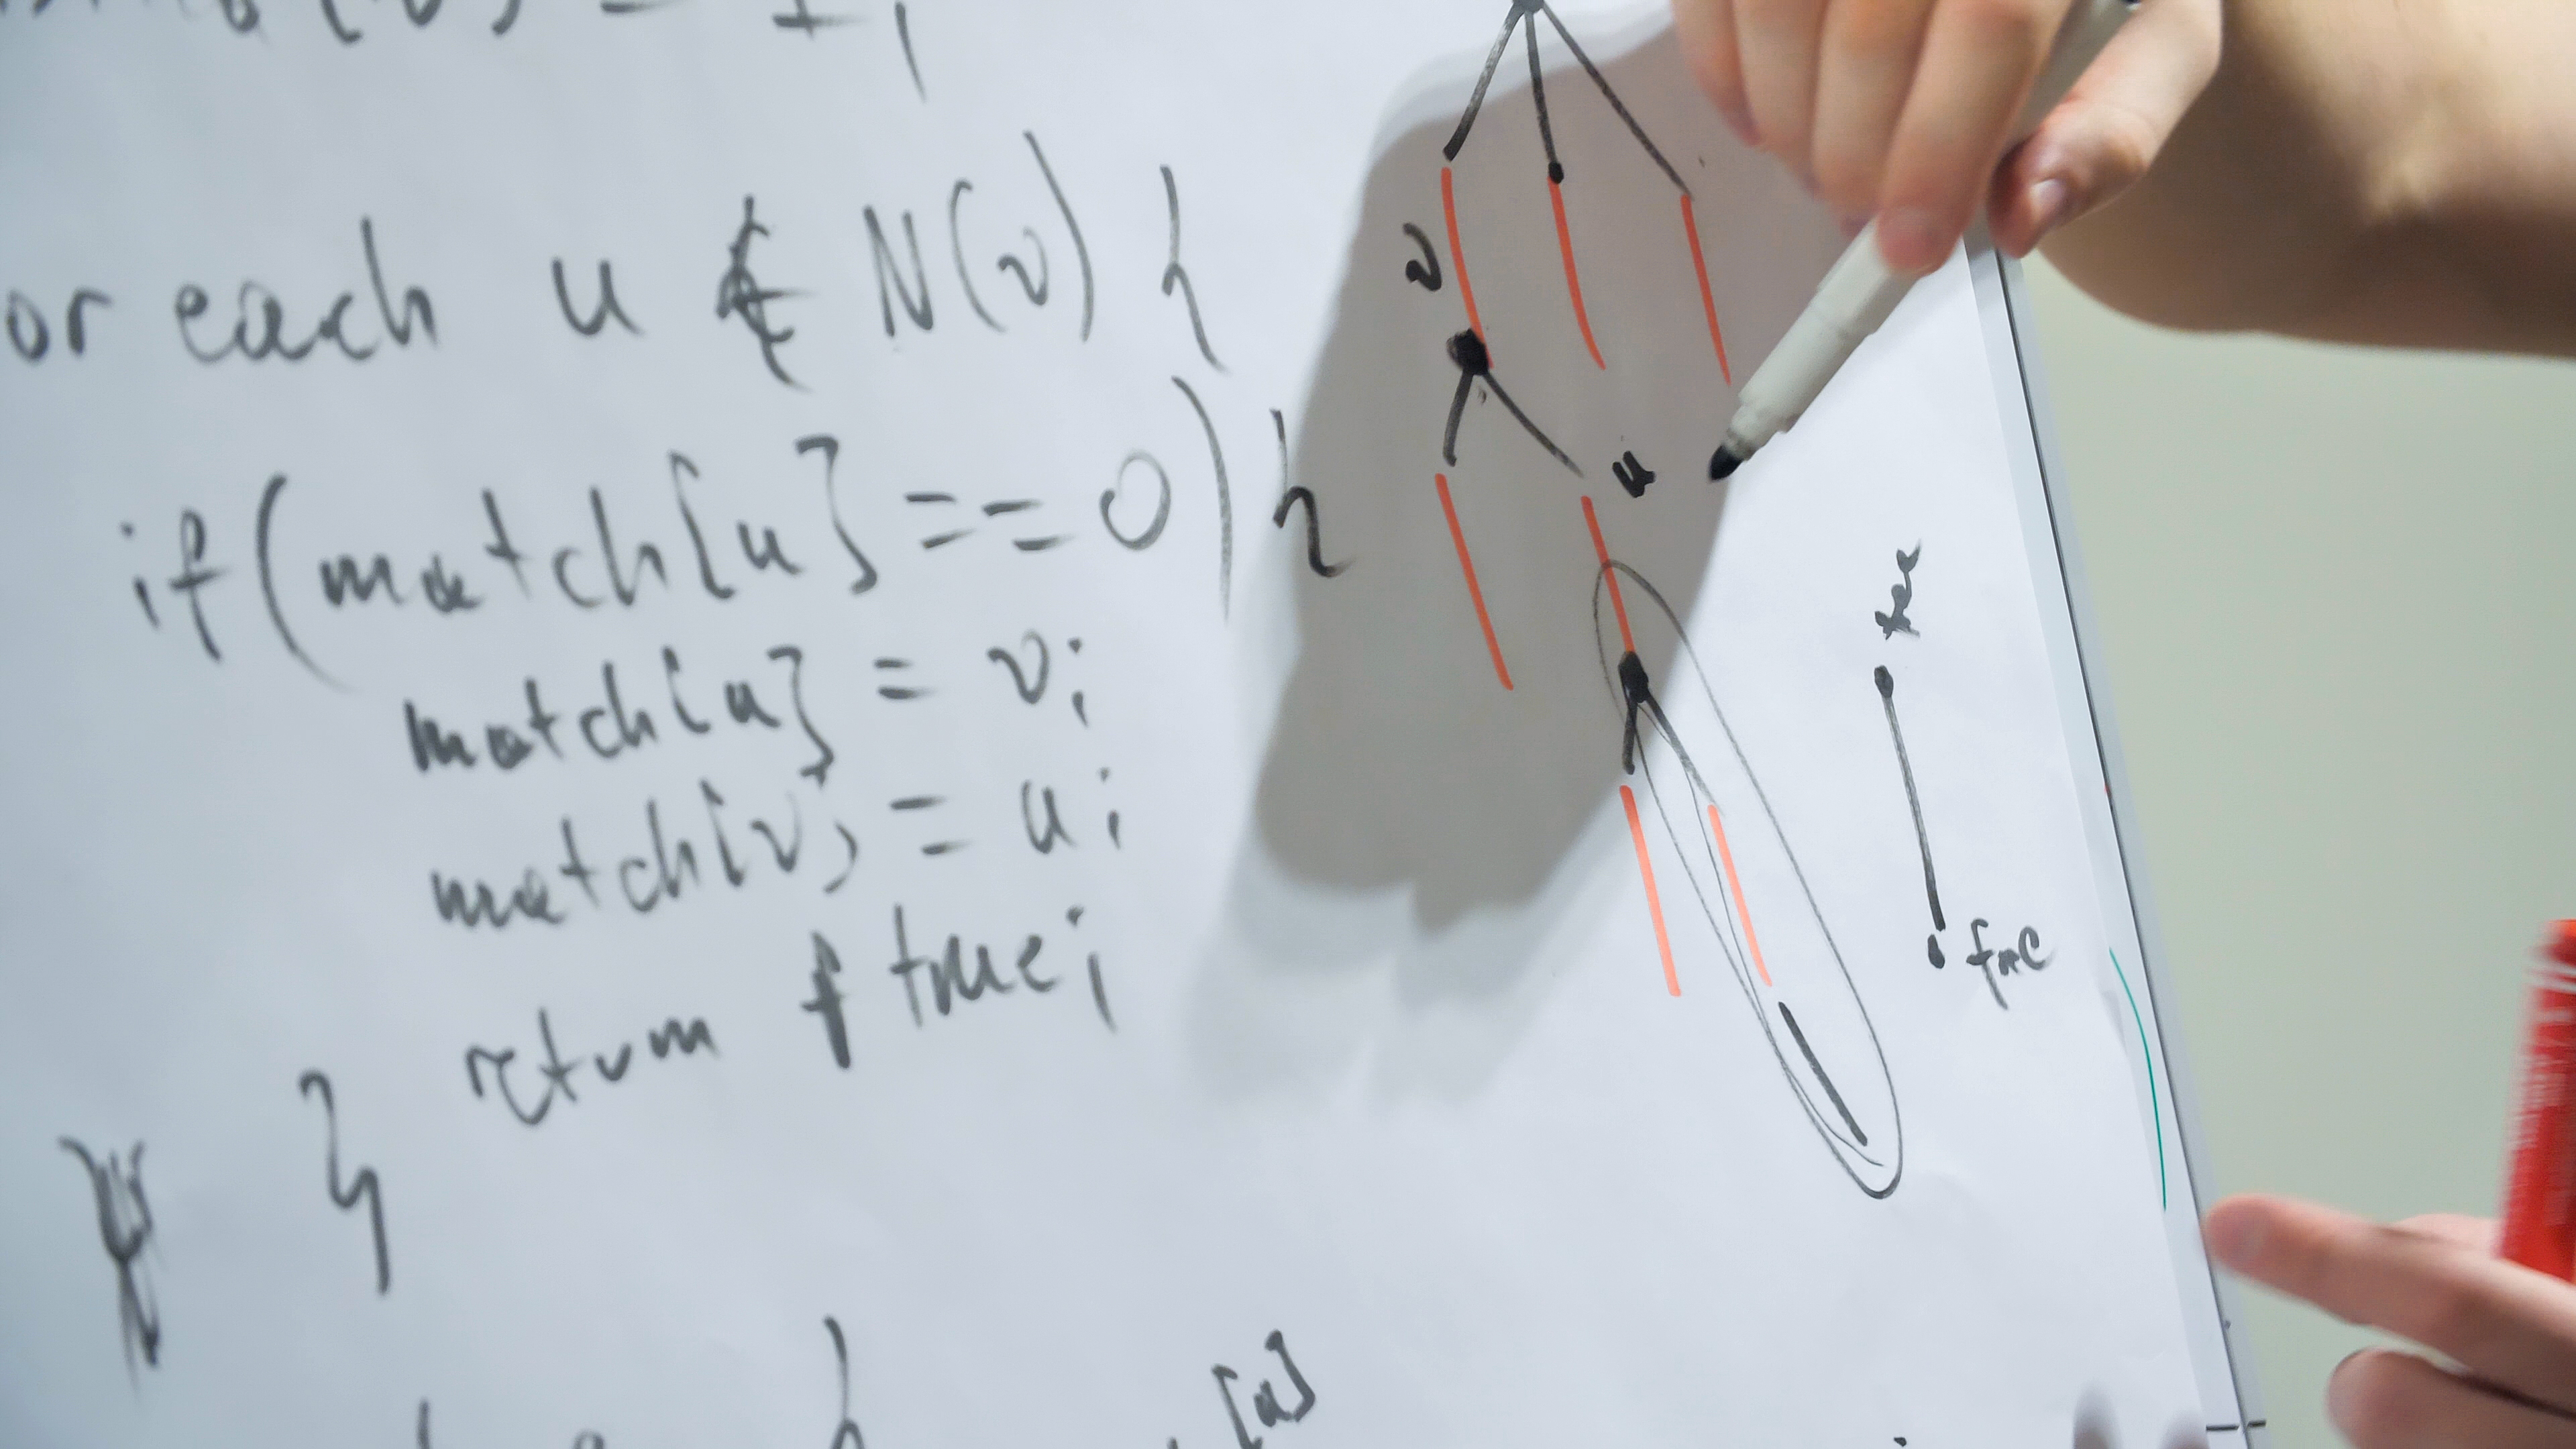 or each u ∈ N(v) {
if(match[u] == 0) {
match[u] = v;
match[v] = u;
return true;
}
[u]
v
u